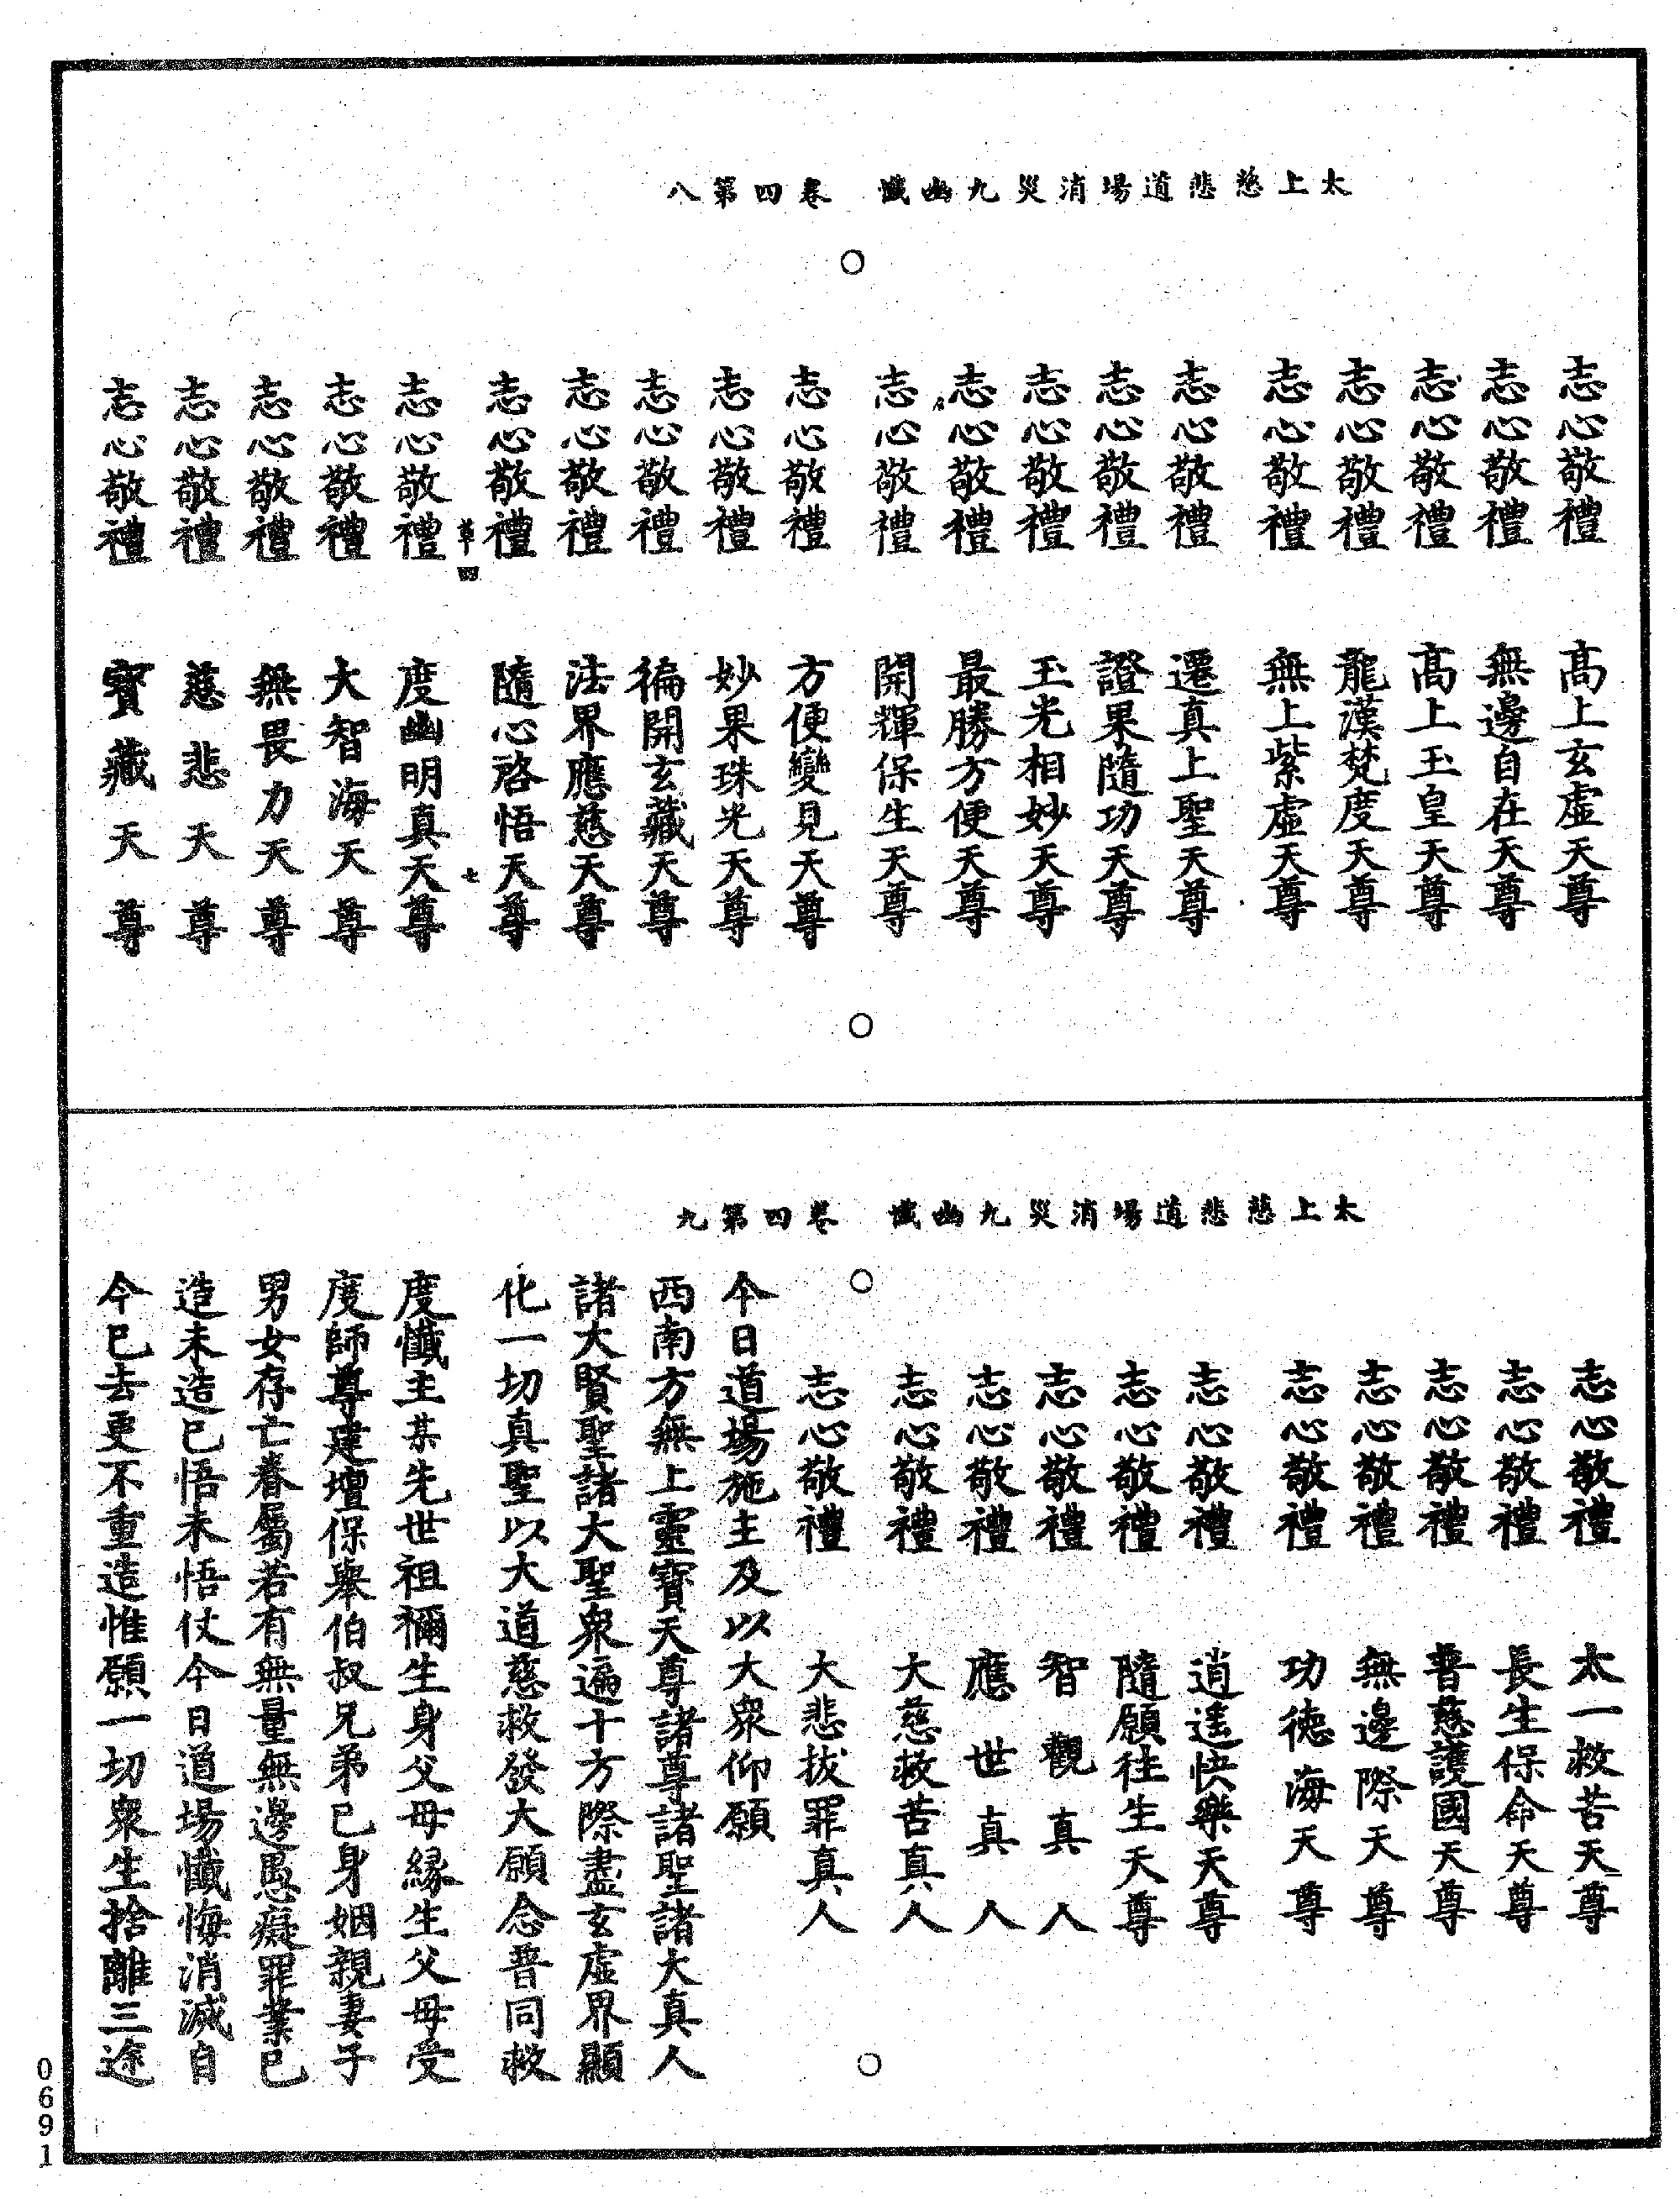 太上慈悲道場消災九幽懺　卷四第八
志心敬禮　高上玄虛天尊
志心敬禮　無邊自在天尊
志心敬禮　高上玉皇天尊
志心敬禮　龍漢梵度天尊
志心敬禮　無上紫虛天尊
志心敬禮　遷真上聖天尊
志心敬禮　證果隨功天尊
志心敬禮　玉光相妙天尊
志心敬禮　最勝方便天尊
志心敬禮　開輝保生天尊
志心敬禮　方便變見天尊
志心敬禮　妙果珠光天尊
志心敬禮　徧開玄藏天尊
志心敬禮　法界應慈天尊
志心敬禮　隨心啓悟天尊
草四　七
志心敬禮　度幽明真天尊
志心敬禮　大智海天尊
志心敬禮　無畏力天尊
志心敬禮　慈悲天尊
志心敬禮　寶藏天尊
太上慈悲道場消災九幽懺　卷四第九
志心敬禮　太一救苦天尊
志心敬禮　長生保命天尊
志心敬禮　普慈護國天尊
志心敬禮　無邊際天尊
志心敬禮　功德海天尊
志心敬禮　逍遥快樂天尊
志心敬禮　隨願往生天尊
志心敬禮　智觀真人
志心敬禮　應世真人
志心敬禮　大慈救苦真人
志心敬禮　大悲拔罪真人
今日道場施主及以大衆仰願
西南方無上靈寶天尊諸尊諸聖諸大真人
諸大賢聖諸大聖衆遍十方際盡玄虛界顯
化一切真聖以大道慈救發大願念普同救
度懺主某先世祖禰生身父母緣生父母受
度師尊建壇保舉伯叔兄弟已身姻親妻子
男女存亡眷屬若有無量無邊愚癡罪業已
造未造已悟未悟仗今日道場懺悔消滅自
今已去更不重造惟願一切衆生捨離三途
0691